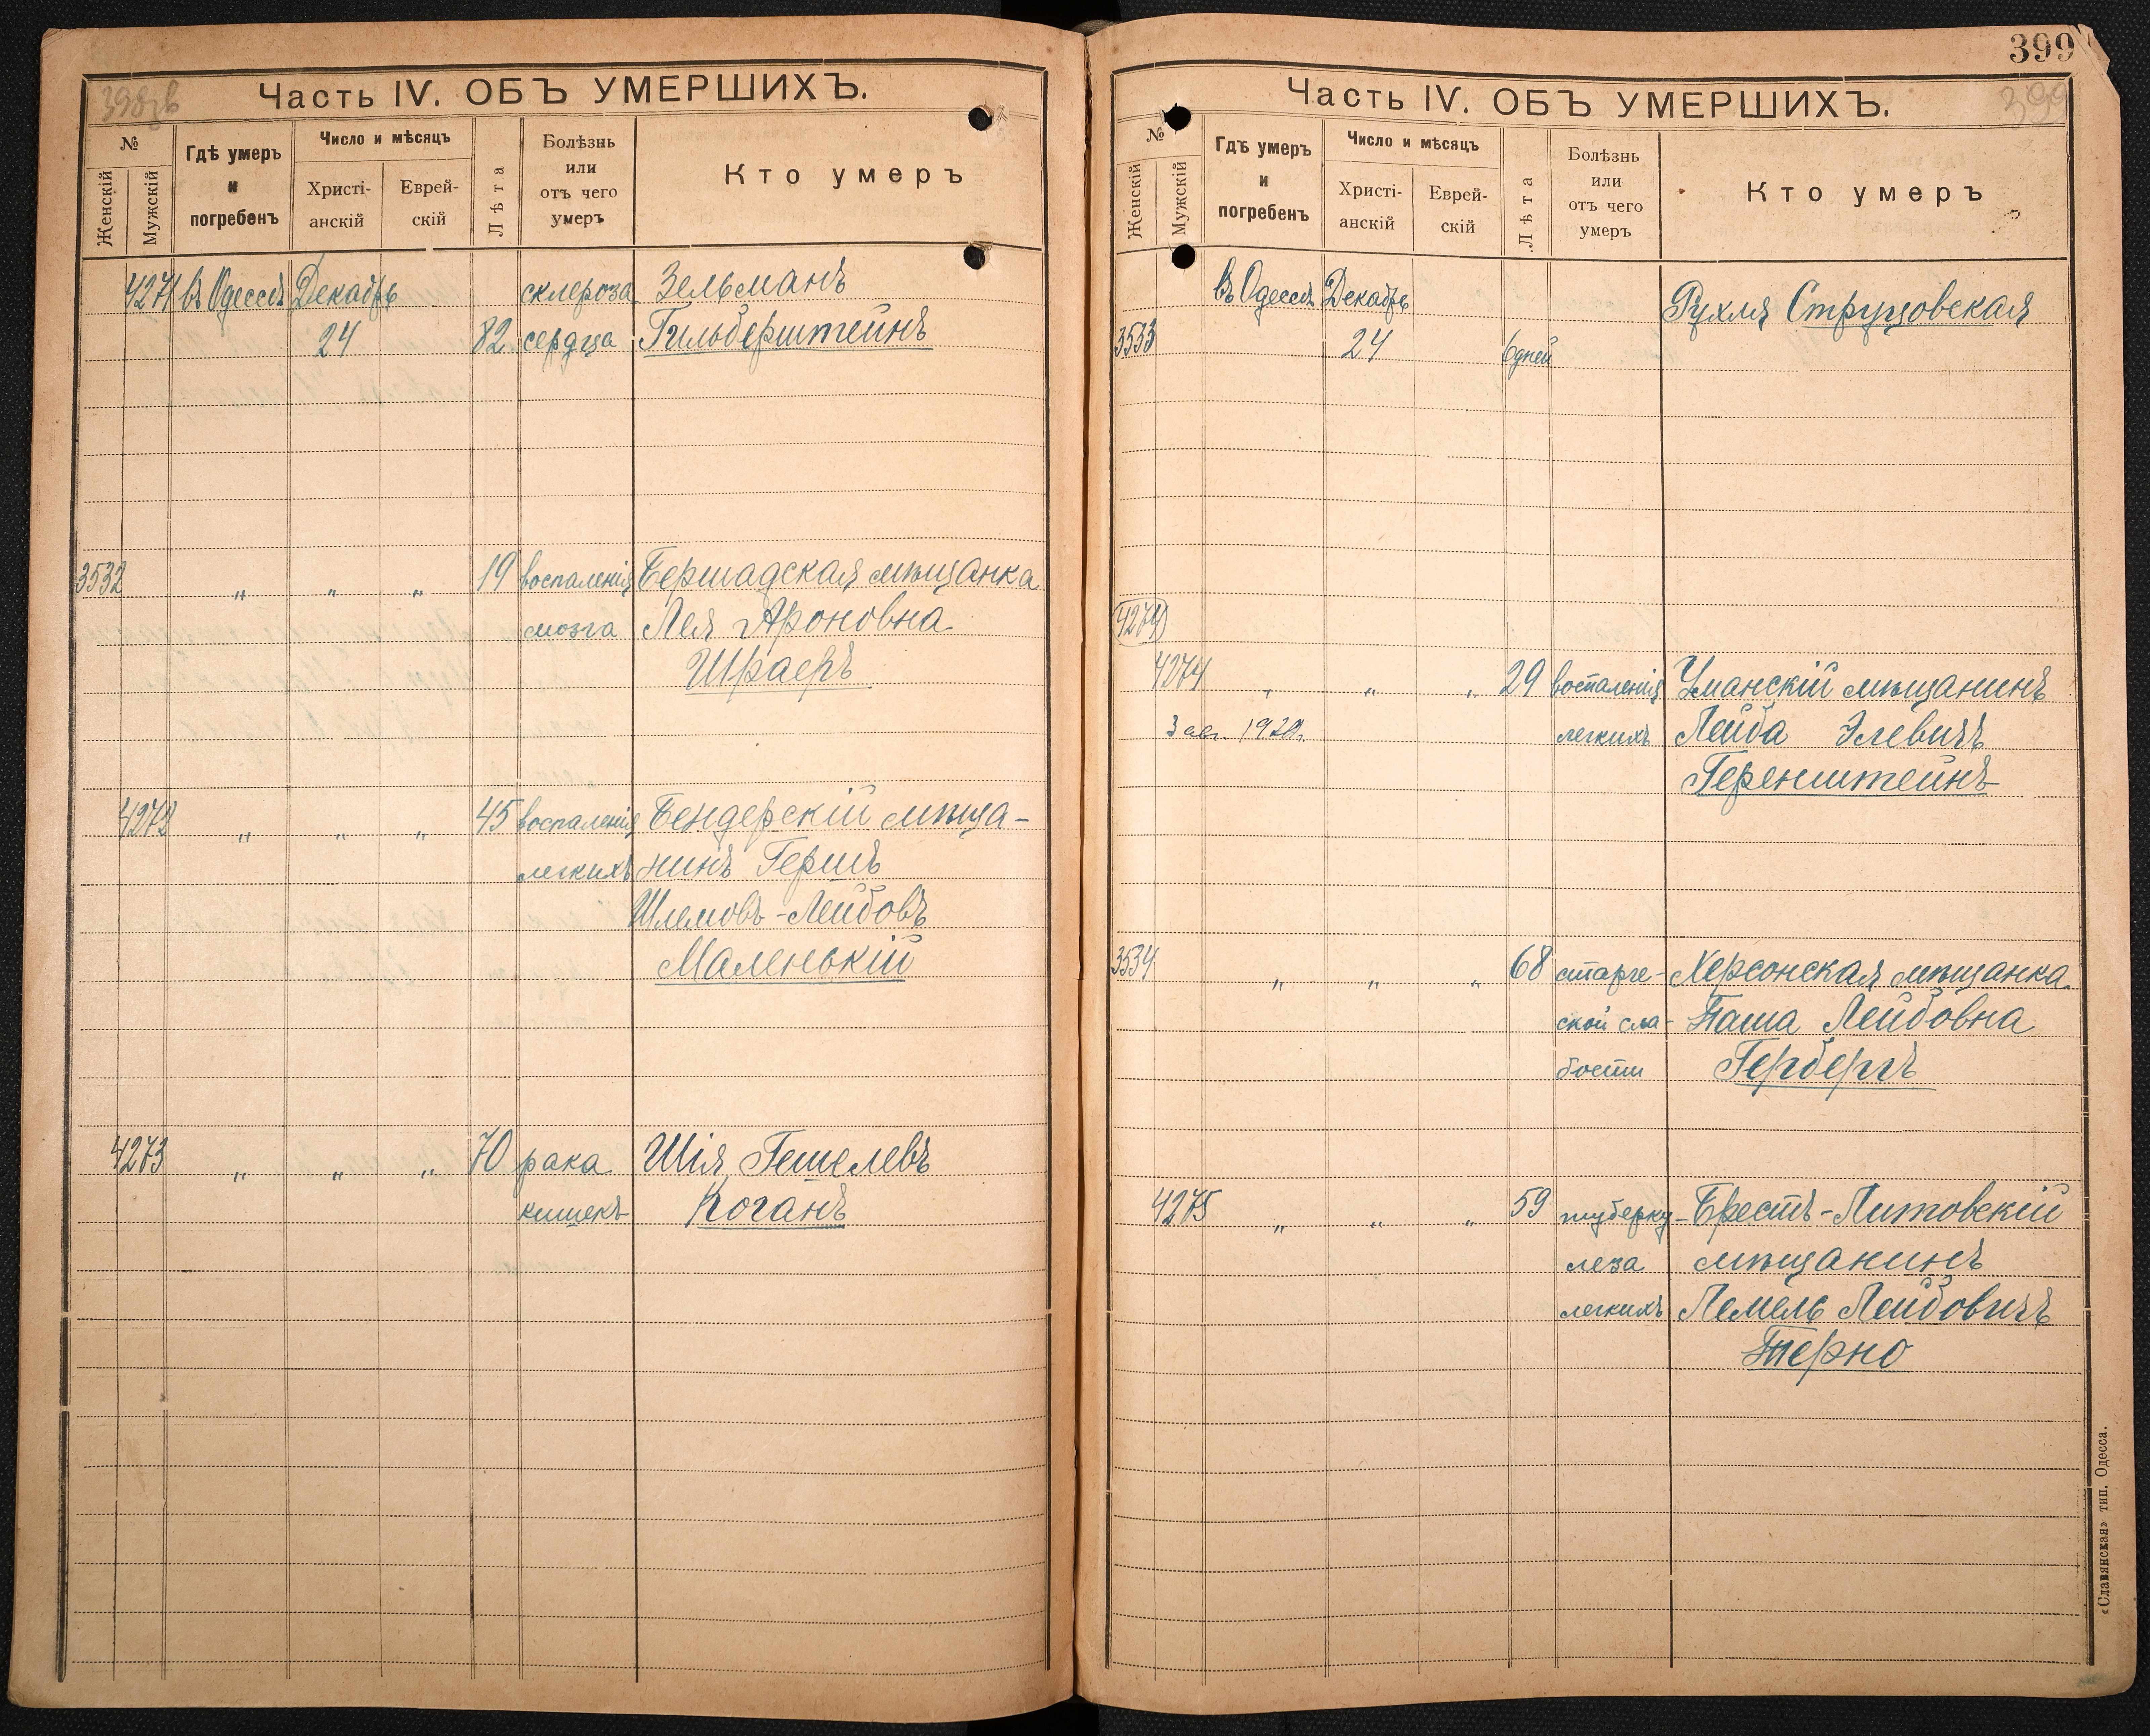 398 об
Часть IV. ОБЪ УМЕРШИХЪ.
№
Женскій
Мужскій
Гдѣ умеръ
и
погребенъ
Число и мѣсяцъ
Христі-
анскій
Еврей-
скій
Лѣта
Болѣзнь
или
отъ чего
умеръ
Кто умеръ
4271 въ Одессѣ Декабрь склероза Зельманъ
24 82 сердца Гильберштейнъ
3532 " " " 19 воспаленія Бершадская мѣщанка
мозга Лея Ароновна
Шраеръ
4272 " " " 45 воспаленія Бендерскій мѣща-
легкихъ нинъ Гершъ
Шлемовъ-Лейбовъ
Маленькій
4273 " " " 70 рака Шія Гешелевъ
кишекъ Коганъ
399
Часть IV. ОБЪ УМЕРШИХЪ.
399
№
Женскій
Мужскій
Гдѣ умеръ
и
погребенъ
Число и мѣсяцъ
Христі-
анскій
Еврей-
скій
Лѣта
Болѣзнь
или
отъ чего
умеръ
Кто умеръ
въ Одессѣ Декабрь Рухля Струцовская
3533 24 6 дней
4274
4274 " " " 29 воспаленія Уманскій мѣщанинъ
3 авг. 1920. легкихъ Лейба Элевичъ
Геренштейнъ
3534 " " " 68 старче- Херсонская мѣщанка
ской сла- Таша Лейбовна
бости Гербергъ
4275 " " " 59 туберку- Брестъ-Литовскій
леза мѣщанинъ
легкихъ Лемель Лейбовичъ
Терно
«Славянская» тип. Одесса.